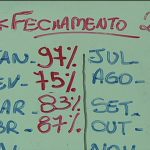 *FECHAMENTO 2
JAN- 97% JUL
EV- 75% AGO-
AR- 83% SET-
BR- 87% OUT-